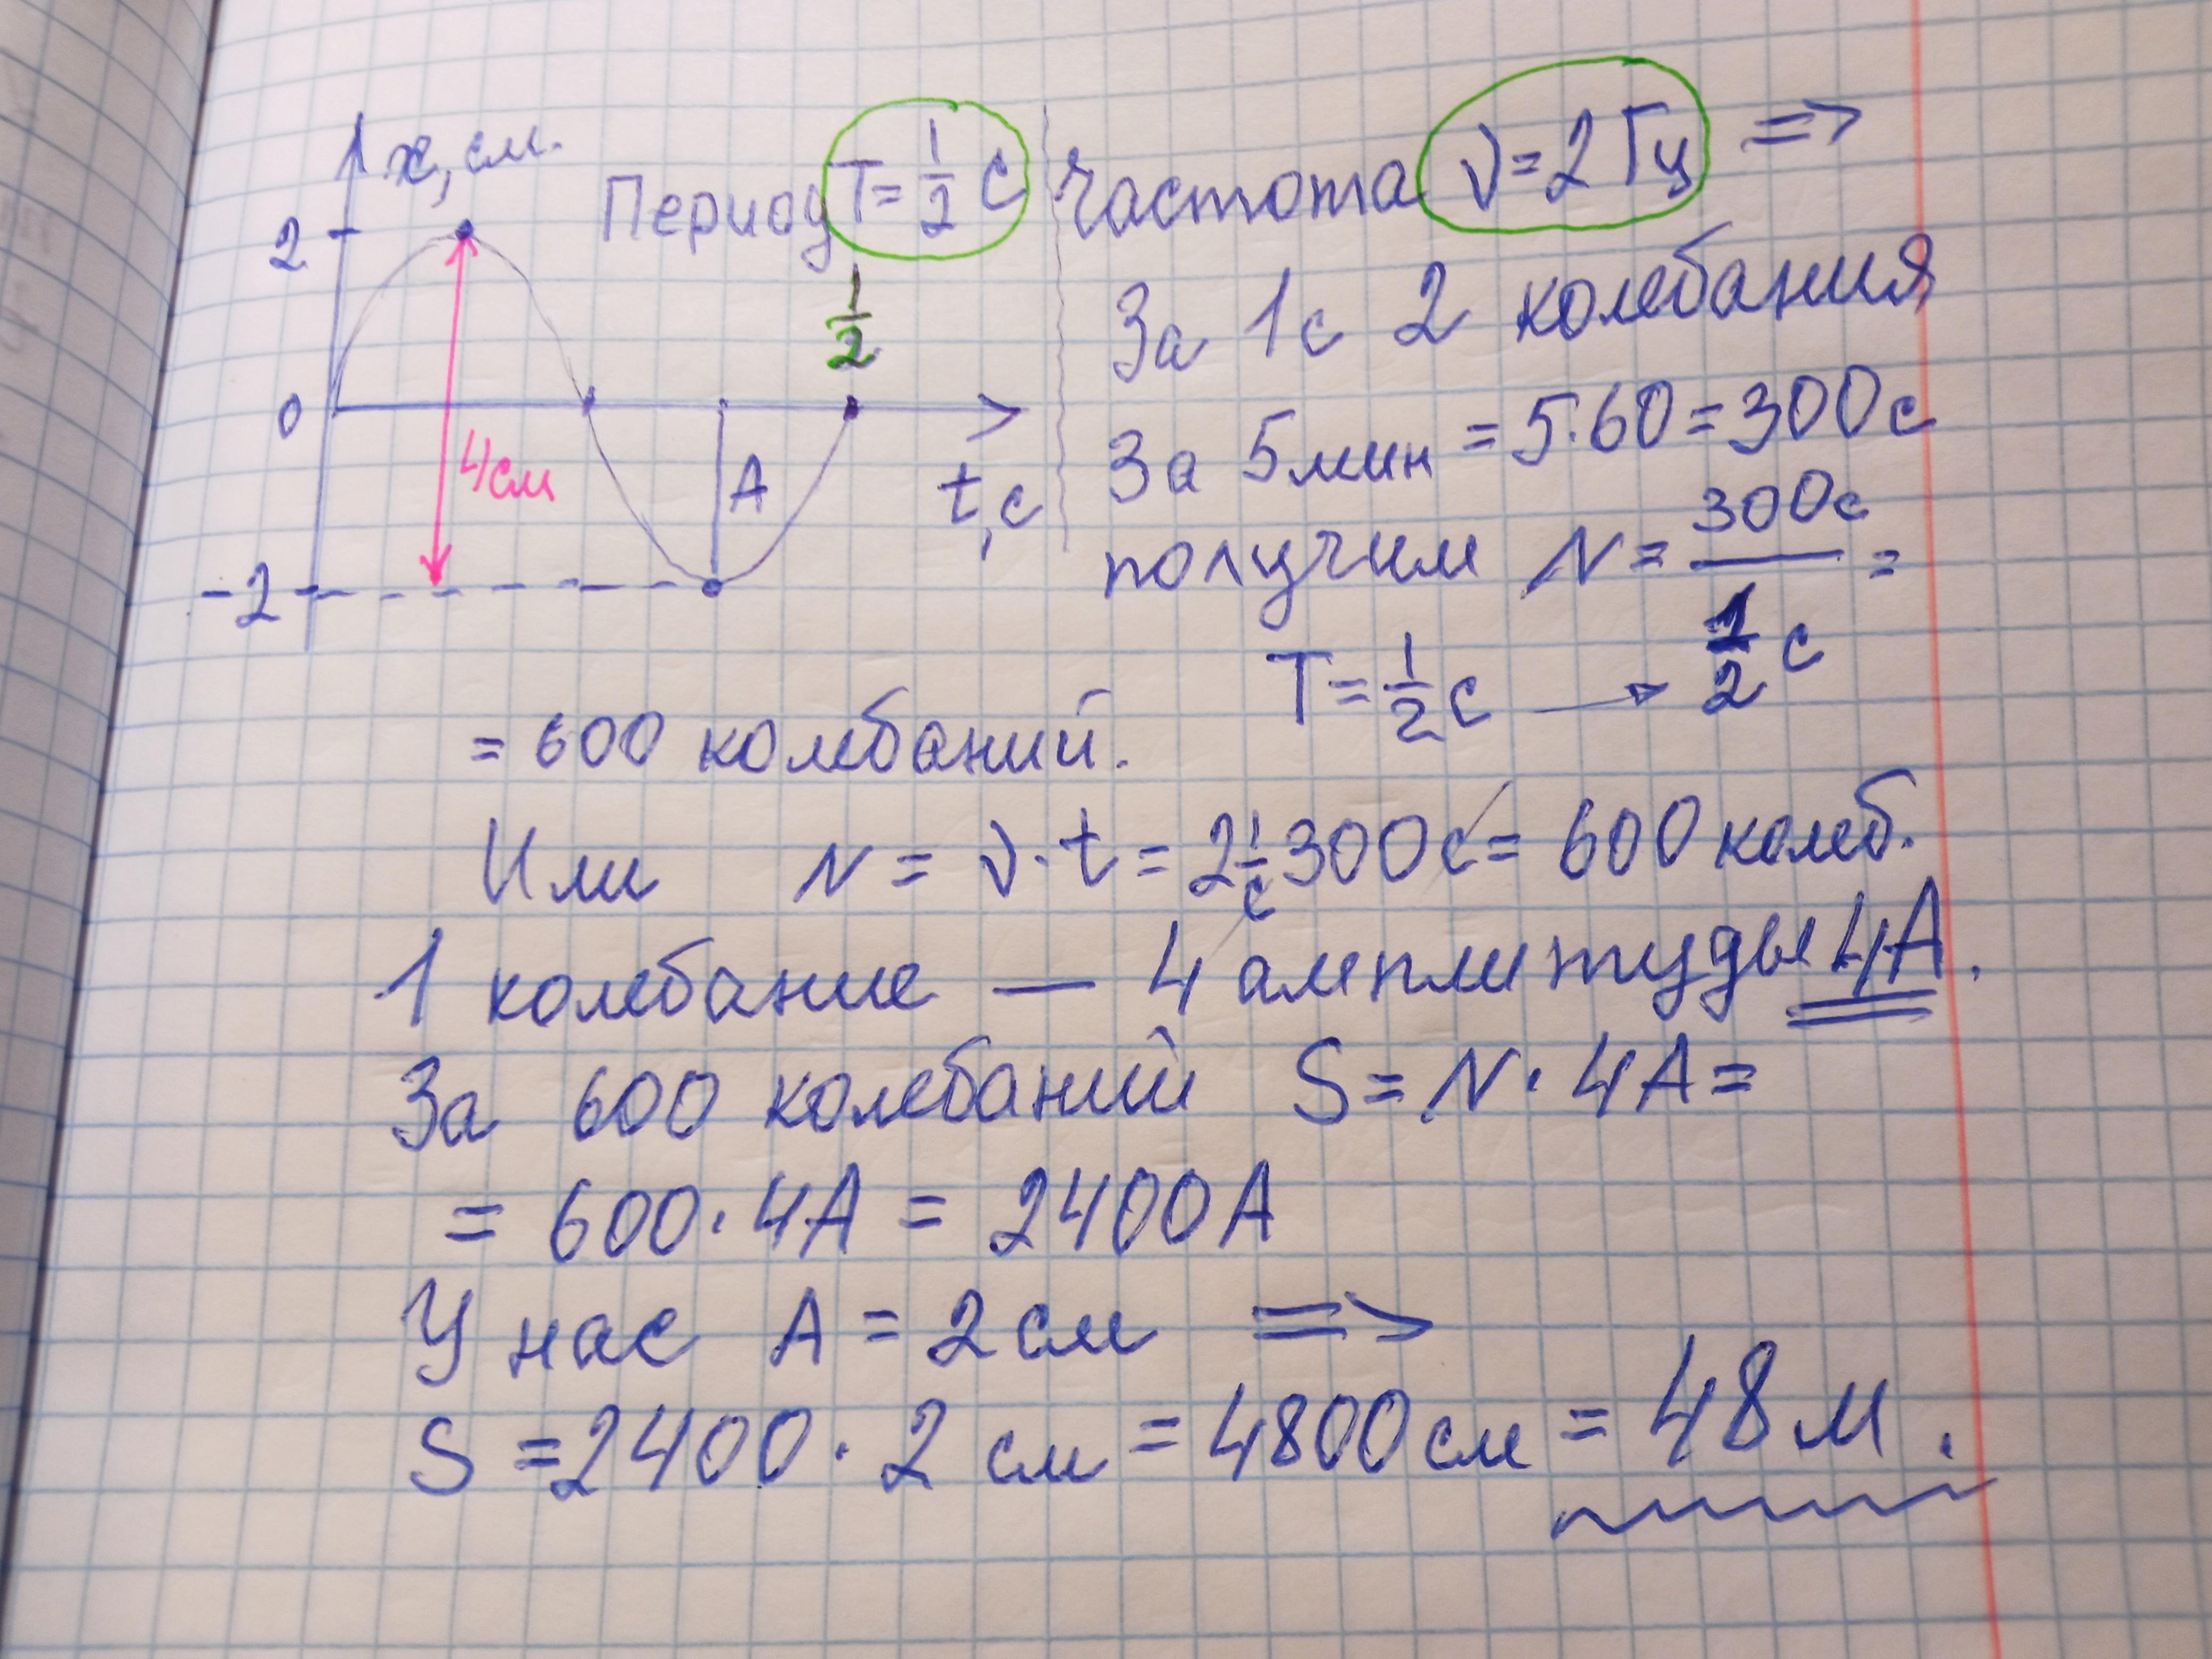 x, см.
2
0
-2
4см
A
1/2
t, с
Период T = 1/2 с
частота ν = 2 Гц =>
За 1с 2 колебания
За 5мин = 5·60 = 300с
получим N = 300с / 1/2 с =
T = 1/2 с →
= 600 колебаний.
Или N = ν·t = 2 1/с 300с = 600 колеб.
1 колебание — 4 амплитуды 4A.
За 600 колебаний S = N·4A =
= 600·4A = 2400A
У нас A = 2см =>
S = 2400·2 см = 4800см = 48м.